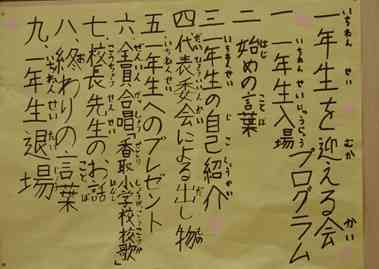 一年生を迎える会
プログラム
一 一年生入場
二 始めの言葉
三 一年生の自己紹介
四 代表委会による出し物
五 一年生へのプレゼント
六 全員合唱「香取小学校校歌」
七 校長先生のお話
八 終わりの言葉
九 一年生退場